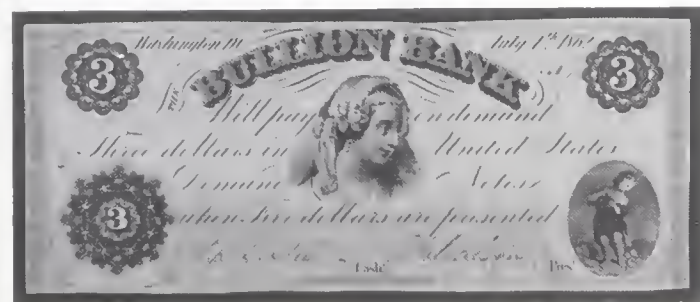 Washington July 1th 1862
3 THE BULLION BANK 3
Will pay on demand
Three dollars in United States
Demand Notes
3 when five dollars are presented
Cash' Pres'